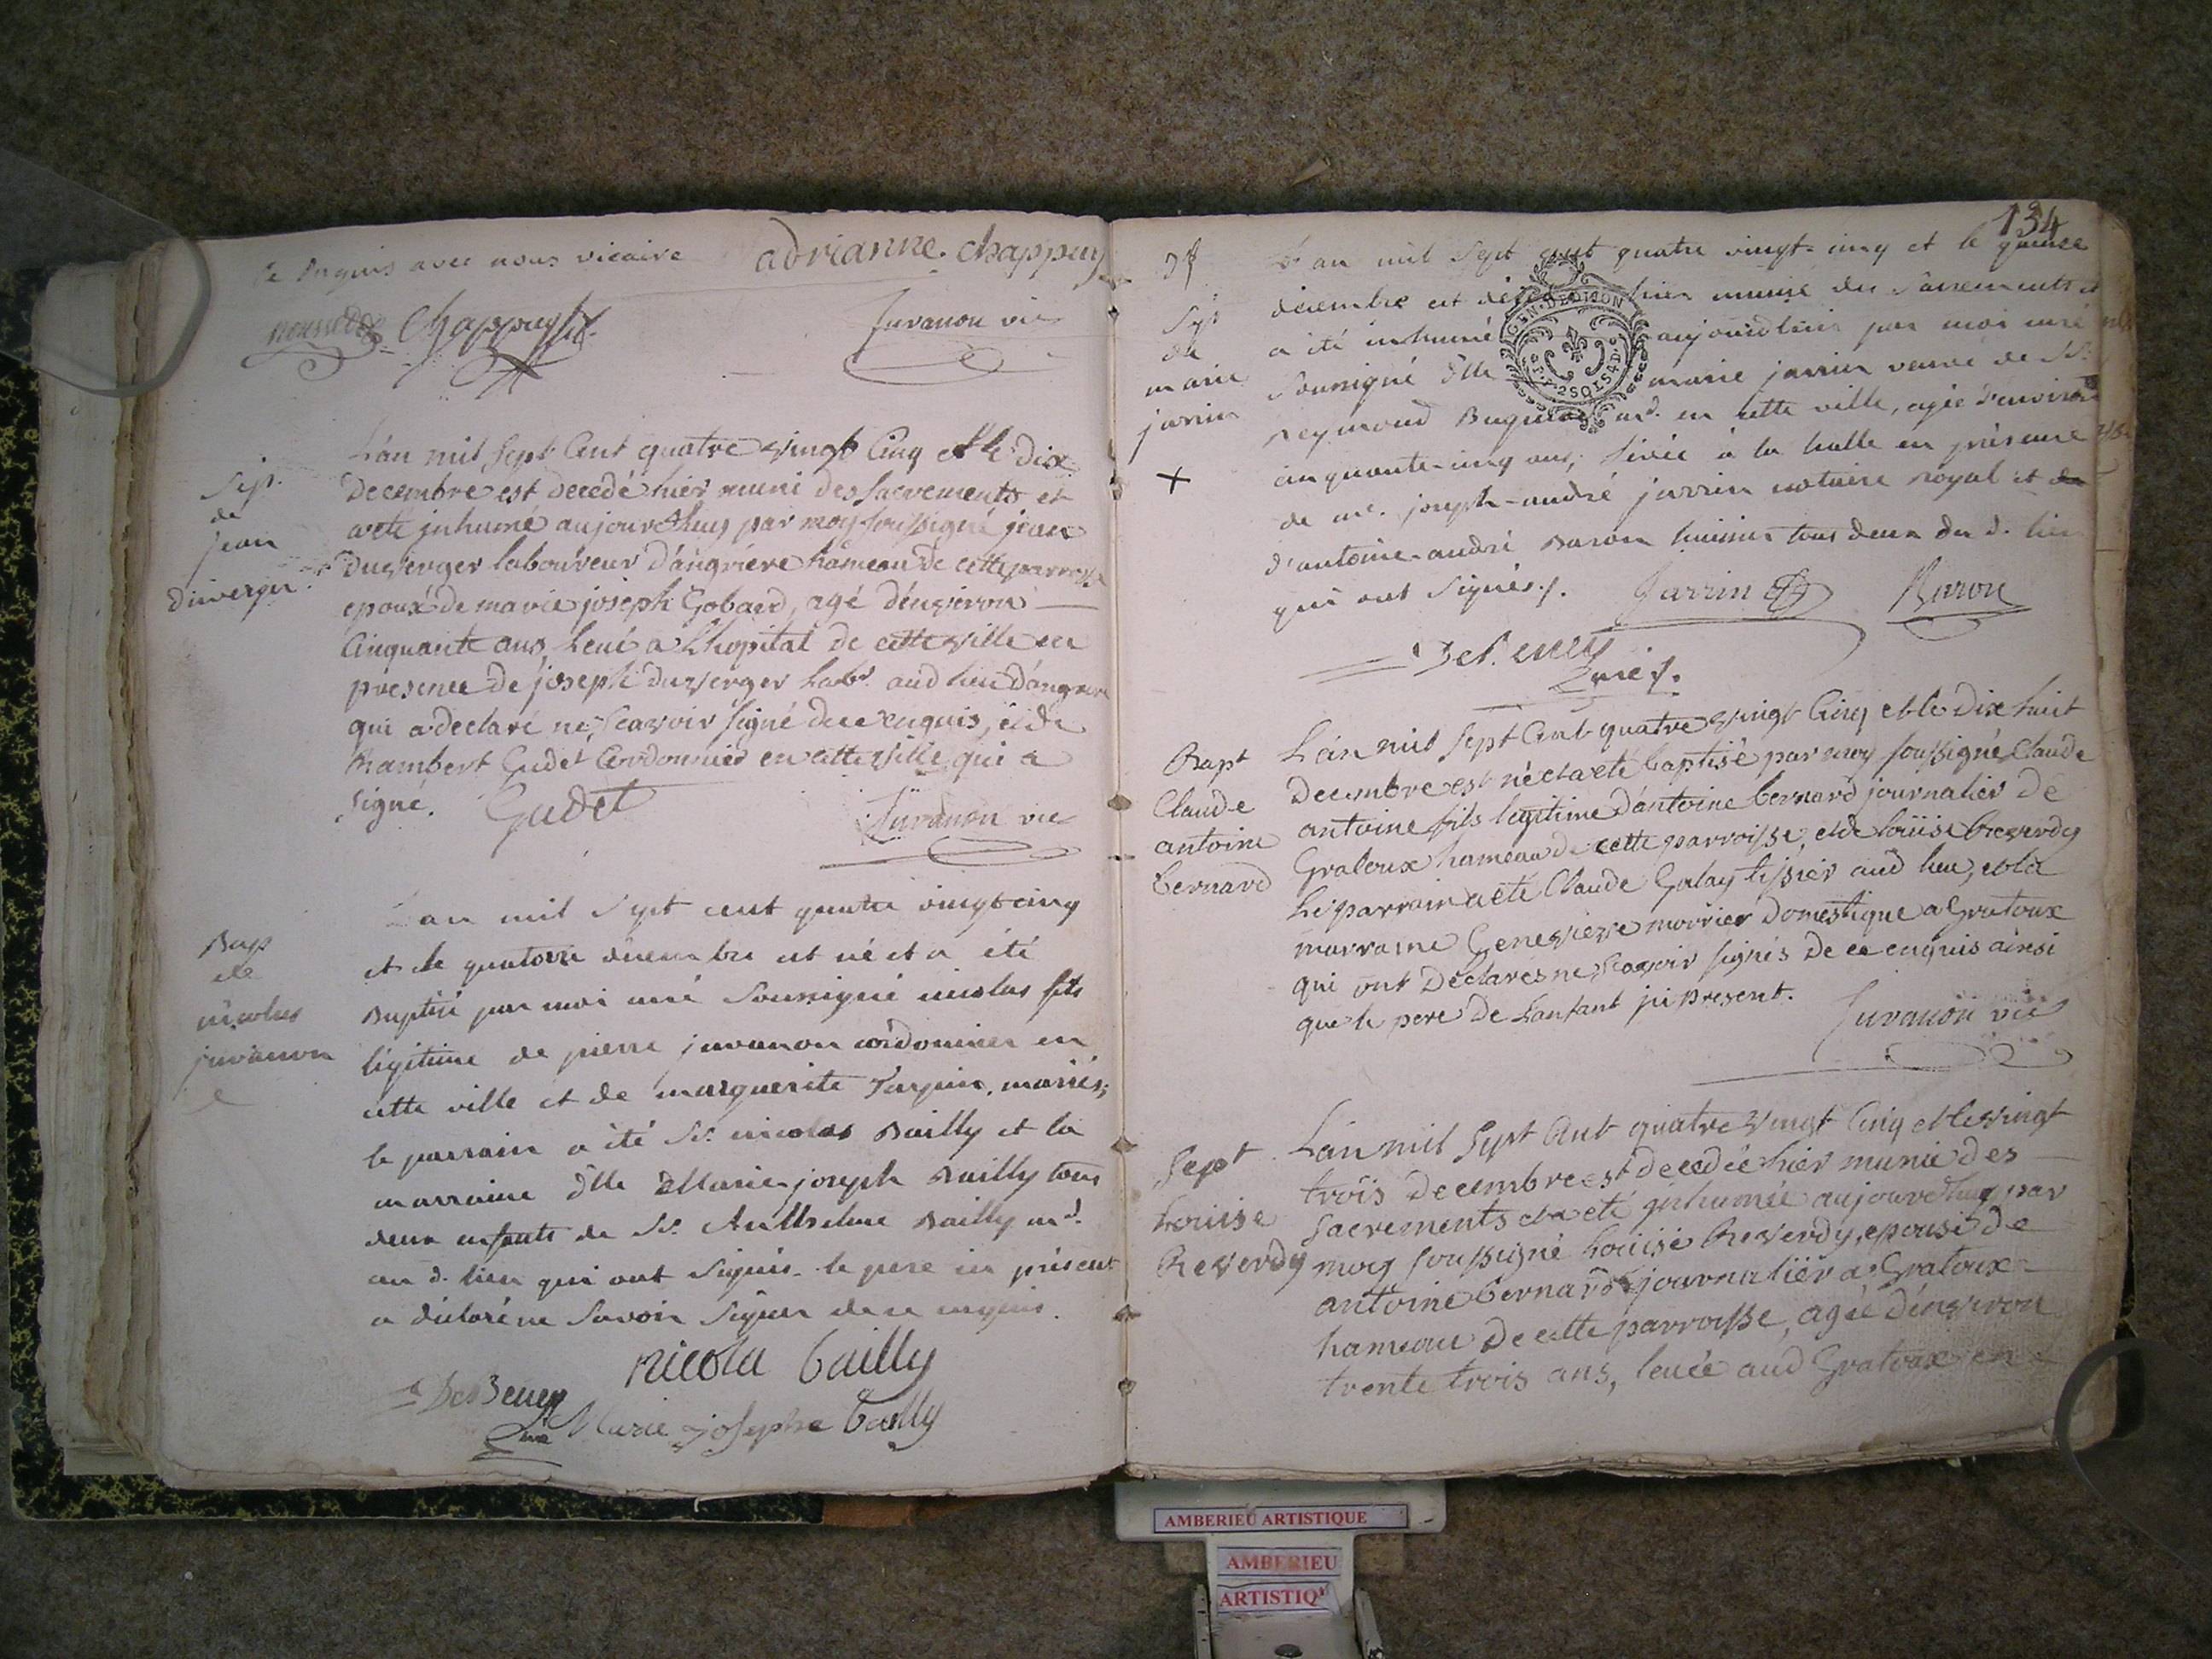 de Enquis avec nous vicaire adrianne. chappuy
Chappuy
Juvanon vic
Sep.
de
jean
duverger
L'an mil sept Cent quatre vingt Cinq et le dix
Decembre est decedé hier muni des sacrements et
a eté inhumé aujourdhuy par moy soussigné jean
Duverger laboureur d'angriére hameau de cette parroisse
epoux de marie joseph Gobard, agé d'environ
Cinquante ans, levé a Lhopital de cette ville en
presence de joseph duverger labr. aud lieu d'angriere
qui a declaré ne sçavoir signé de ce enquis, et de
Rambert Gudet Cordonnier en cette ville qui a
signé. Gudet Juvanon vic
Bap
de
nicolas
juvanon
L'an mil sept cent quatre vingt cinq
et le quatorze décembre est né et a été
Baptisé par moi curé soussigné nicolas fils
légitime de pierre juvanon cordonnier en
cette ville et de marguerite mariés;
le parrain a été Sr. nicolas Bailly et la
marraine dlle Marie joseph Bailly tous
deux enfants de Sr. Anthelme Bailly md.
au d. lieu qui ont signés. le pere ici présent
a déclaré ne savoir signer de ce enquis.
nicola bailly
DeBeney
Curé Marie josephe bailly
134
Sep
de
marie
jarrin
+
L'an mil sept cent quatre vingt-cinq et le quinze
décembre est décédée hier munie des sacrements et
a été inhumée aujourdhui par moi curé
soussigné dlle marie jarrin veuve de Sr.
Reymond md. en cette ville, agée d'environ
cinquante-cinq ans, levée à la halle en présence
de me. joseph-andré jarrin notaire royal et de
d'antoine-andré Baron huissier tous deux du d. lieu
qui ont signés./. Jarrin Baron
DeBeney
Curé./.
GEN. DE DIJON
2 SOLS 4 D.
Bapt
Claude
antoine
bernard
L'an mil sept Cent quatre vingt Cinq et le Dix huit
Decembre est né et a eté baptisé par moy soussigné Claude
antoine fils legitime d'antoine bernard journalier de
Gratoux hameau de cette parroisse, et de loüise Reverdy
Le parrain a eté Claude Galay tissier aud lieu, et la
marraine Genevieve mourier Domestique a Gratoux
qui ont Declarés ne sçavoir signés De ce enquis ainsi
que le pere De Lanfant ici present.
Juvanon vic
Sept
Louise
Reverdy
L'an mil sept Cent quatre vingt Cinq et le vingt
trois Decembre est decedée hier munie des
sacrements et a eté inhumée aujourdhuy par
moy soussigné Loüise Reverdy, epouse de
antoine bernard journalier a Gratoux
hameau de cette parroisse, agée d'environ
trente trois ans, levée aud Gratoux en
AMBERIEU ARTISTIQUE
AMBERIEU
ARTISTIQ